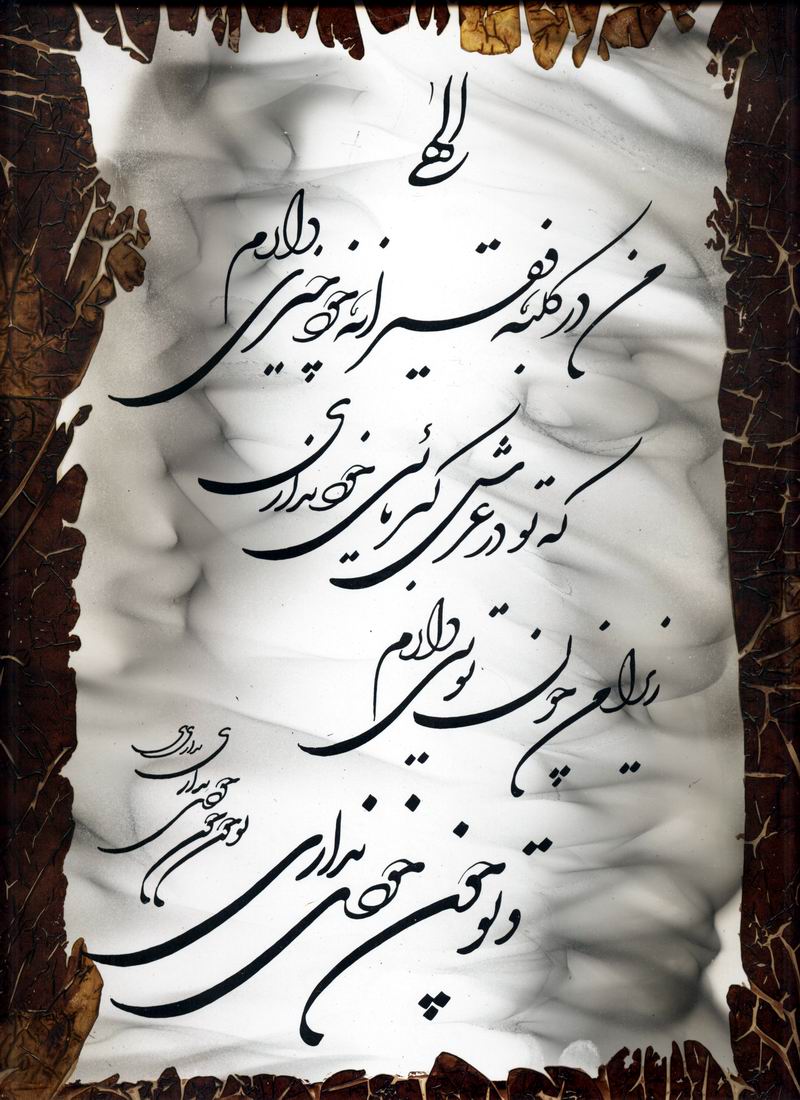 الهی
من در کلبه فقیرانه خود چیزی دارم
که تو در عرش کبریائی خود نداری
زیرا من چون توئی دارم
و تو چون خودی نداری
تو چون خودی نداری
نداری